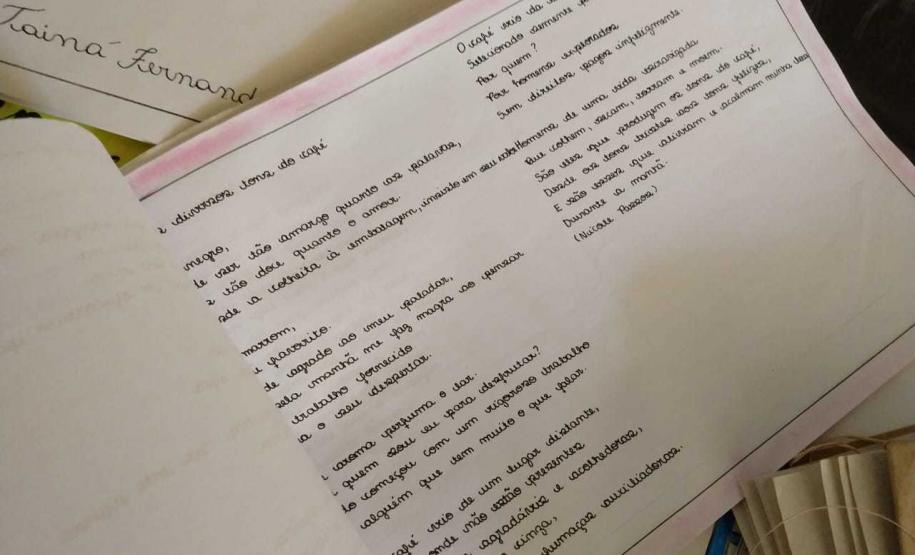 Tainá Fernand
e diversos tons do café
negro,
de ser tão amargo quanto as palavras,
e tão doce quanto o amor.
sde a colheita à embalagem, imerso em seu
marrom,
u favorito.
de agrado ao meu paladar,
sela manhã me faz magra ao pensar
trabalho fornecido
a o seu despertar.
aroma perfuma o lar.
quem sou eu para desfrutar?
do começou com um rigoroso trabalho
alguém que tem muito o que falar.
café veio de um lugar distante,
onde não estão presentes
agradáveis e acolhedoras,
cinza,
fumaças auxiliadoras.
O café veio da
Selecionado somente
Por quem?
Por homens explorados
Sem direitos pagos infelizmente.
Homens de uma vida
Que colhem, secam, torram e moem.
São eles que produzem os tons do café,
Desde os tons tristes aos tons felizes,
E são esses que aliviam e acalmam minha
Durante a manhã.
(Nicole Passos)